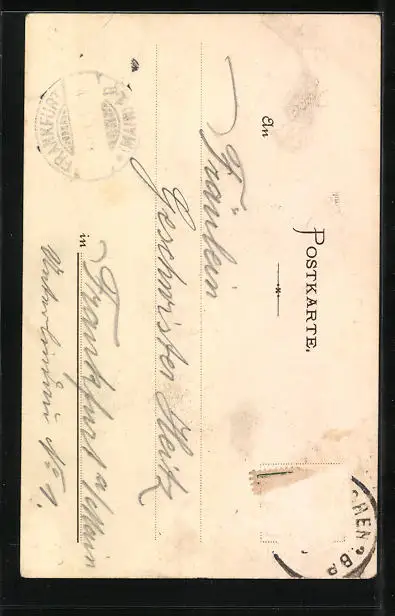 POSTKARTE.
An
Fräulein
Geschwister Heitz
in Frankfurt a/Main
No 1.
FRANKFURT (MAIN)
CHEN